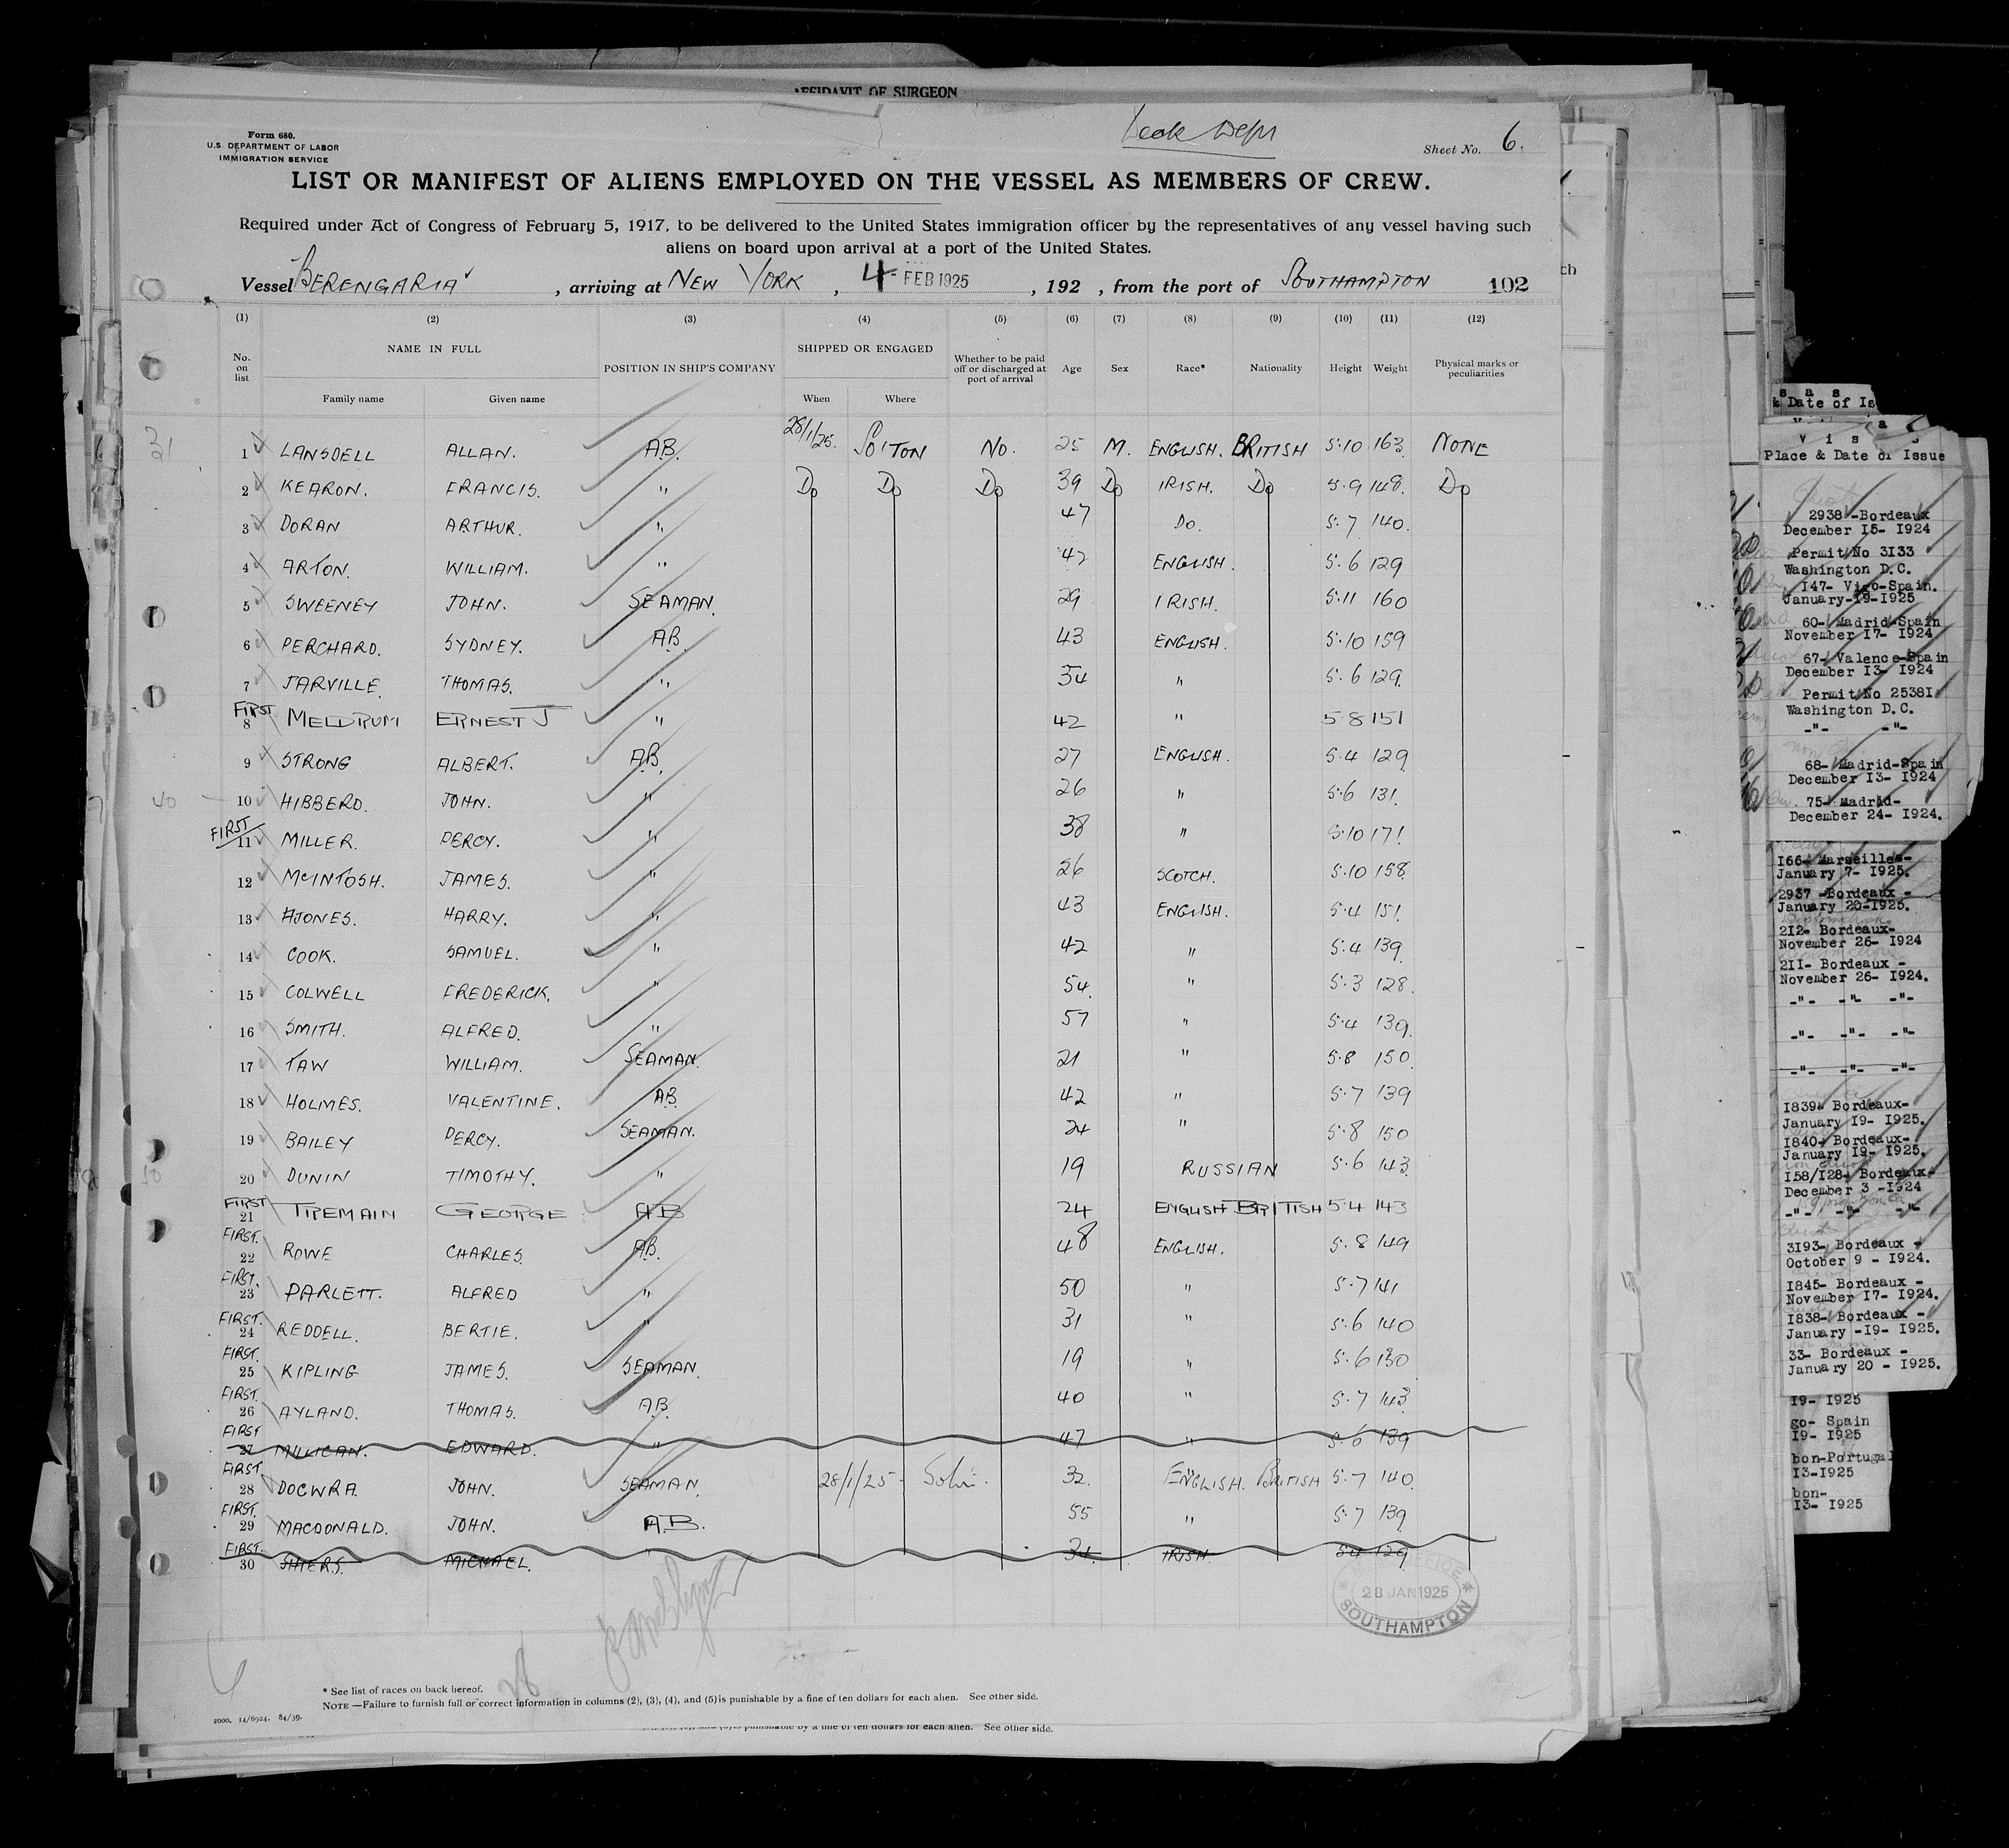 AFFIDAVIT OF SURGEON
Form 680.
U.S. DEPARTMENT OF LABOR
IMMIGRATION SERVICE
Sheet No. 6.
LIST OR MANIFEST OF ALIENS EMPLOYED ON THE VESSEL AS MEMBERS OF CREW.
Required under Act of Congress of February 5, 1917, to be delivered to the United States immigration officer by the representatives of any vessel having such
aliens on board upon arrival at a port of the United States.
Vessel BERENGARIA, arriving at NEW YORK, 4 - FEB 1925, 192 , from the port of SOUTHAMPTON 102
(1) (2) (3) (4) (5) (6) (7) (8) (9) (10) (11) (12)
No. on list NAME IN FULL POSITION IN SHIP'S COMPANY SHIPPED OR ENGAGED Whether to be paid off or discharged at port of arrival Age Sex Race* Nationality Height Weight Physical marks or peculiarities
Family name Given name When Where
31
1 LANSDELL ALLAN. A.B. 28/1/25. SO'TON NO. 25 M. ENGLISH. BRITISH 5.10 163 NONE
2 KEARON. FRANCIS. " Do Do Do 39 Do IRISH. Do 5.9 148. Do
3 DORAN ARTHUR. " 47 Do. 5.7 140.
4 ARTON. WILLIAM. " 42 ENGLISH. 5.6 129
5 SWEENEY JOHN. SEAMAN. 29 IRISH. 5.11 160
6 PERCHARD. SYDNEY. A.B. 43 ENGLISH. 5.10 159
7 JARVILLE. THOMAS. " 54 " 5.6 129.
FIRST 8 MELDRUM ERNEST J " 42 " 5 8 151
9 STRONG ALBERT. A.B. 27 ENGLISH. 5.4 129
40 10 HIBBERD. JOHN. " 26 " 5.6 131.
FIRST 11 MILLER. PERCY. " 38 " 5.10 171
12 McINTOSH. JAMES. " 26 SCOTCH. 5.10 158.
13 HJONES. HARRY. " 43 ENGLISH. 5.4 151
14 COOK. SAMUEL. " 42 " 5.4 139
15 COLWELL FREDERICK. " 54. " 5.3 128.
16 SMITH. ALFRED. " 57 " 5.4 139.
17 TAW WILLIAM. SEAMAN. 21 " 5.8 150
18 HOLMES. VALENTINE. A.B. 42 " 5.7 139
19 BAILEY PERCY. SEAMAN. 24 " 5.8 150
50 20 DUNIN TIMOTHY. " 19 RUSSIAN 5.6 143
FIRST 21 TREMAIN GEORGE AB 24 ENGLISH BRITISH 5.4 143
FIRST. 22 ROWE CHARLES. A.B. 48 ENGLISH. 5.8 149
FIRST. 23 PARLETT. ALFRED " 50 " 5.7 141
FIRST. 24 REDDELL. BERTIE. " 31 " 5.6 140
FIRST. 25 KIPLING JAMES. SEAMAN. 19 " 5.6 130
FIRST. 26 AYLAND. THOMAS. A.B. 40 " 5.7 143
FIRST 27 MILLICAN. EDWARD. " 47 " 5.6 139
FIRST. 28 DOCWRA. JOHN. SEAMAN. 28/1/25 32. ENGLISH. BRITISH 5.7 140
FIRST. 29 MACDONALD. JOHN. A.B. 55 " 5.7 139
FIRST. 30 SHIERS. MICHAEL. " 34. IRISH. 5.4 129
28 JAN 1925
SOUTHAMPTON
28
* See list of races on back hereof.
NOTE.—Failure to furnish full or correct information in columns (2), (3), (4), and (5) is punishable by a fine of ten dollars for each alien. See other side.
2000. 14/6924. 84/39.
is punishable by a fine of ten dollars for each alien. See other side.
& Date of Is
V i s a s
Place & Date of Issue
2938 -Bordeaux
December 15- 1924
Permit No 3133
Washington D.C.
147- Vigo-Spain.
January-19-1925
60- Madrid-Spain
November 17- 1924
67- Valence-Spain
December 13- 1924
Permit No 25381
Washington D.C.
-"- -"-
68- Madrid-Spain
December 13- 1924
75- Madrid-
December 24- 1924.
166- Marseilles-
January 7- 1925.
2937 -Bordeaux -
January 20-1925.
212- Bordeaux-
November 26- 1924
211- Bordeaux -
November 26- 1924.
-"- -"- -"-
-"- -"- -"-
-"- -"- -"-
1839- Bordeaux-
January 19- 1925.
1840- Bordeaux-
January 19- 1925.
158/128- Bordeaux-
December 3 -1924
-"- -"- -"-
3193- Bordeaux -
October 9 - 1924.
1845- Bordeaux -
November 17- 1924.
1838- Bordeaux -
January -19- 1925.
33- Bordeaux -
January 20 - 1925.
19- 1925
go- Spain
19- 1925
bon-Portugal
13-1925
bon-
13- 1925